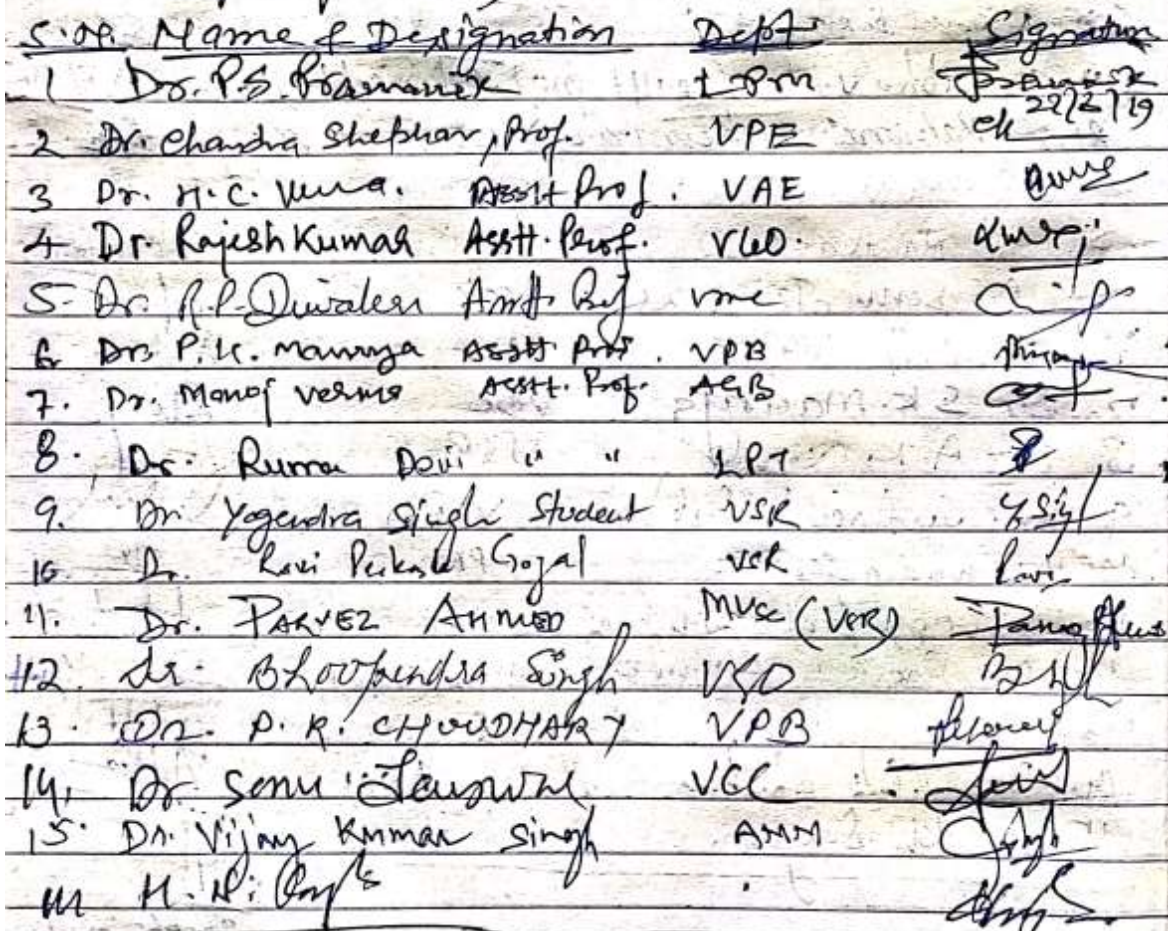 S.no. Name & Designation Dept. Signature
1 Dr. P.S. Pramanik LPM Pramanik 22/2/19
2 Dr. Chandra Shekhar, Prof. VPE
3 Dr. H.C. Verma. Asstt Prof. VAE
4 Dr. Rajesh Kumar Asstt. Prof.
5- Dr. R.P. Diwakar Asstt. Prof VMC
6 Dr. P.K. Maurya Asstt Prof. VPB
7. Dr. Manoj Verma Asstt. Prof. AGB
8. Dr. Ruma Devi " " LPT
9. Dr Yogendra Singh Student VSR Y. Singh
10 Dr. Ravi Prakash Goyal VSR Ravi
11. Dr. PARVEZ AHMED MVSc
12. Dr. Bhoopendra Singh
13. Dr. P. R. CHOUDHARY VPB
14. Dr Sonu Jaiswal VGC
15. Dr. Vijay Kumar Singh Singh
H.